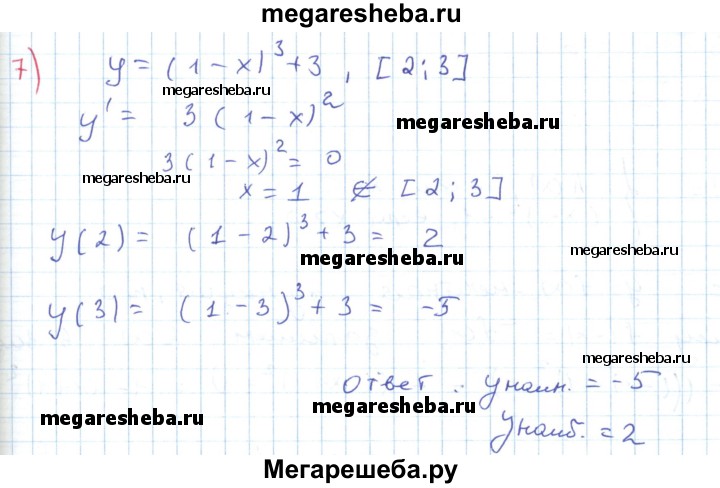 megaresheba.ru
7) y = (1 - x)³ + 3, [2; 3]
megaresheba.ru
y' = 3 (1 - x)²
megaresheba.ru
3 (1 - x)² = 0
megaresheba.ru
x = 1 ∉ [2; 3]
y(2) = (1 - 2)³ + 3 = 2
megaresheba.ru
megaresheba.ru
y(3) = (1 - 3)³ + 3 = -5
megaresheba.ru
ответ: yнаим. = -5
megaresheba.ru
megaresheba.ru
yнаиб. = 2
Мегарешеба.ру